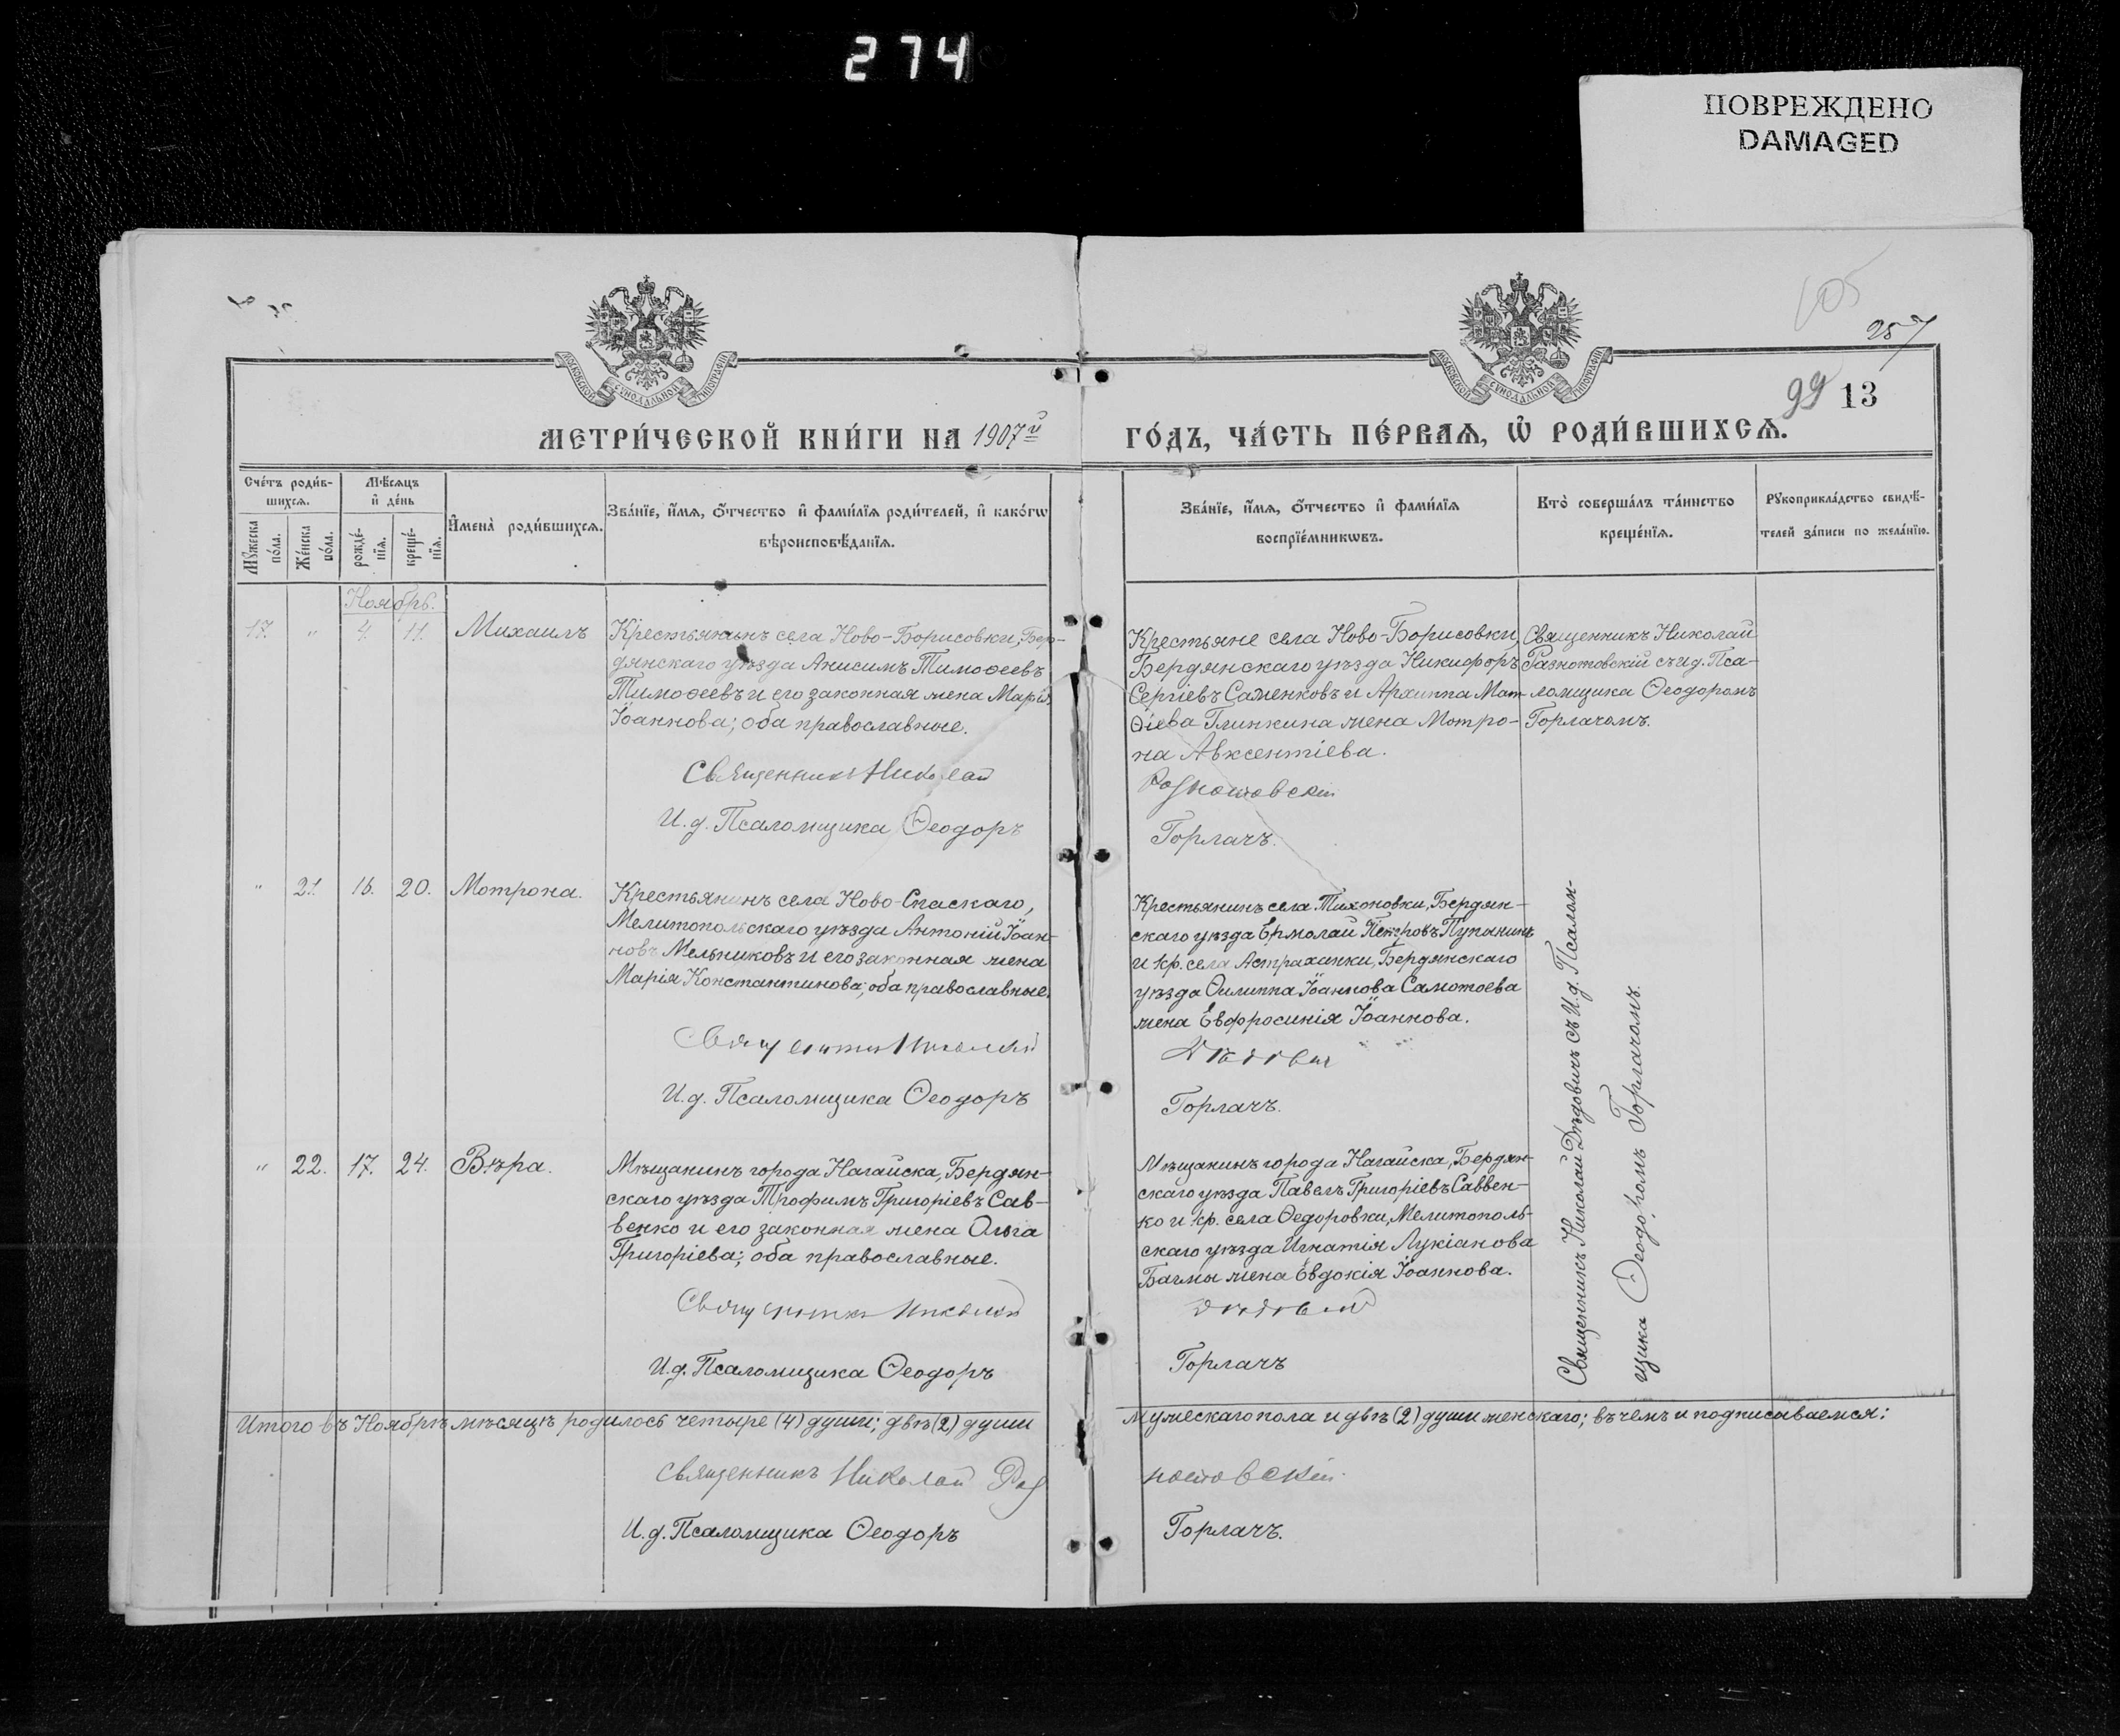 274
ПОВРЕЖДЕНО
DAMAGED
105
257
99 13
МОСКОВСКОЙ СѴНОДАЛЬНОЙ ТИПОГРАФІИ
МОСКОВСКОЙ СѴНОДАЛЬНОЙ ТИПОГРАФІИ
МЕТРИ́ЧЕСКОЙ КНИ́ГИ НА 1907й ГО́ДЪ, ЧА́СТЬ ПЕ́РВАѦ, Ѡ҆ РОДИ́ВШИХСѦ.
Сче́тъ роди́в-
шихсѧ.
Мꙋ́жеска
по́ла.
Же́нска
по́ла.
Мѣ́сѧцъ
и҆ де́нь
рожде́-
нїѧ.
креще́-
нїѧ.
И҆мена̀ роди́вшихсѧ.
Зва́нїе, и҆́мѧ, ѻ҆́тчество и҆ фами́лїѧ роди́телей, и҆ како́гѡ
вѣроисповѣ́данїѧ.
Зва́нїе, и҆́мѧ, ѻ҆́тчество и҆ фами́лїѧ
воспрїе́мникѡвъ.
Кто̀ соверша́лъ та́инство
креще́нїѧ.
Рꙋкоприкла́дство свидѣ́-
телей за́писи по жела́нїю.
Ноябрь.
17. " 4. 11. Михаилъ
Крестьянинъ села Ново-Борисовки, Бер-
дянскаго уѣзда Анисимъ Тимоѳеевъ
Тимоѳеевъ и его законная жена Марія
Іоаннова; оба православные.
Священникъ Николай
И.д. Псаломщика Ѳеодоръ
Крестьяне села Ново-Борисовки,
Бердянскаго уѣзда Никифоръ
Сергіевъ Саменковъ и Архиппа Мат-
ѳіева Глинкина жена Мотро-
на Авксентіева.
Розмотовскій
Горлачъ.
Священникъ Николай
Розмотовскій съ и.д. Пса-
ломщика Ѳеодоромъ
Горлачомъ.
" 21. 16. 20. Мотрона.
Крестьянинъ села Ново-Спаскаго,
Мелитопольскаго уѣзда Антоній Іоан-
новъ Мельниковъ и его законная жена
Марія Константинова; оба православные.
Священникъ Николай
И.д. Псаломщика Ѳеодоръ
Крестьянинъ села Тихоновки, Бердян-
скаго уѣзда Ермолай Петровъ Пупынинъ
и кр. села Астраханки, Бердянскаго
уѣзда Ѳилиппа Іоаннова Самотоева
жена Евфросинія Іоаннова.
Дѣдовичъ
Горлачъ.
" 22. 17. 24. Вѣра.
Мѣщанинъ города Нагайска, Бердян-
скаго уѣзда Трофимъ Григоріевъ Сав-
венко и его законная жена Ольга
Григоріева; оба православные.
Священникъ Николай
И.д. Псаломщика Ѳеодоръ
Мѣщанинъ города Нагайска, Бердян-
скаго уѣзда Павелъ Григоріевъ Саввен-
ко и кр. села Ѳедоровки, Мелитополь-
скаго уѣзда Игнатія Лукіанова
Бачмы жена Евдокія Іоаннова.
Дѣдовичъ
Горлачъ
Священникъ Николай Дѣдовичъ съ И.д. Псалом-
щика Ѳеодоромъ Горлачомъ.
Итого въ Ноябрѣ мѣсяцѣ родилось четыре (4) души; двѣ (2) души мужескаго пола и двѣ (2) души женскаго; въ чемъ и подписываемся:
Священникъ Николай Розмотовскій.
И.д. Псаломщика Ѳеодоръ Горлачъ.